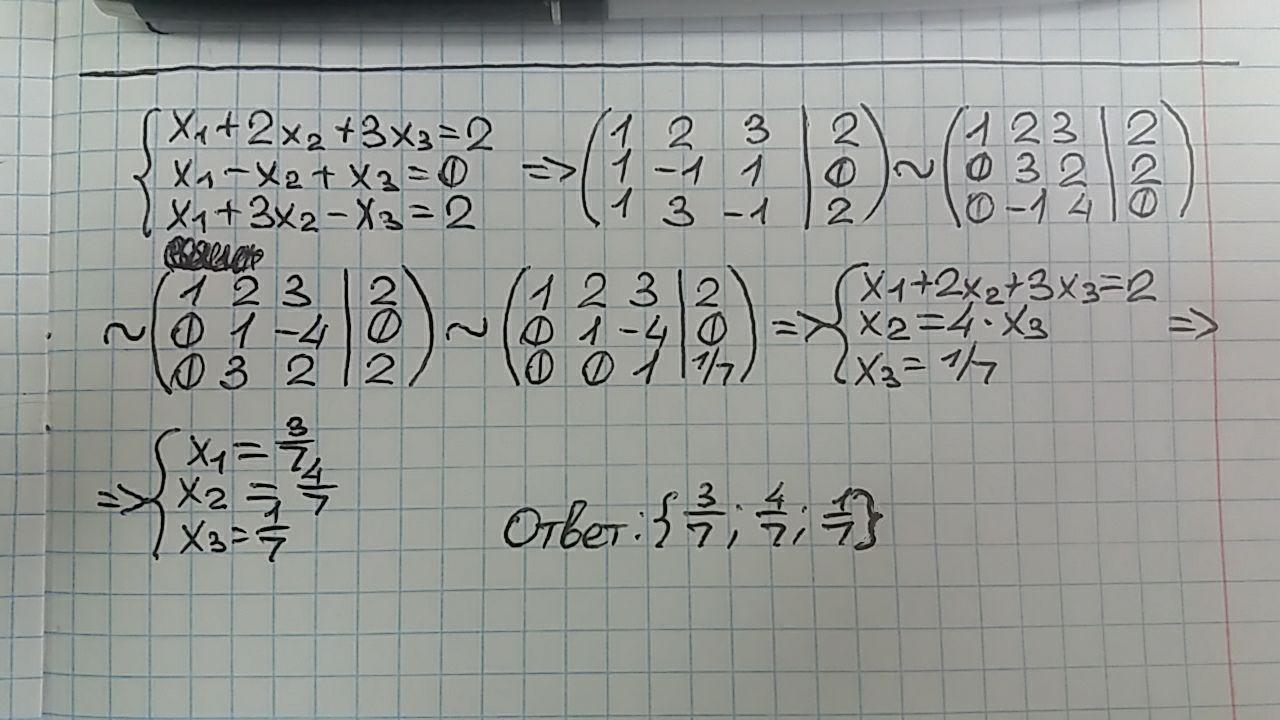 { x₁+2x₂+3x₃=2
x₁-x₂+x₃=0
x₁+3x₂-x₃=2
=> (1 2 3 | 2
1 -1 1 | 0
1 3 -1 | 2)
~ (1 2 3 | 2
0 3 2 | 2
0 -1 4 | 0)
~ (1 2 3 | 2
0 1 -4 | 0
0 3 2 | 2)
~ (1 2 3 | 2
0 1 -4 | 0
0 0 1 | 1/7)
=> { x₁+2x₂+3x₃=2
x₂=4·x₃
x₃=1/7
=>
=> { x₁=3/7
x₂=4/7
x₃=1/7
Ответ: {3/7; 4/7; 1/7}